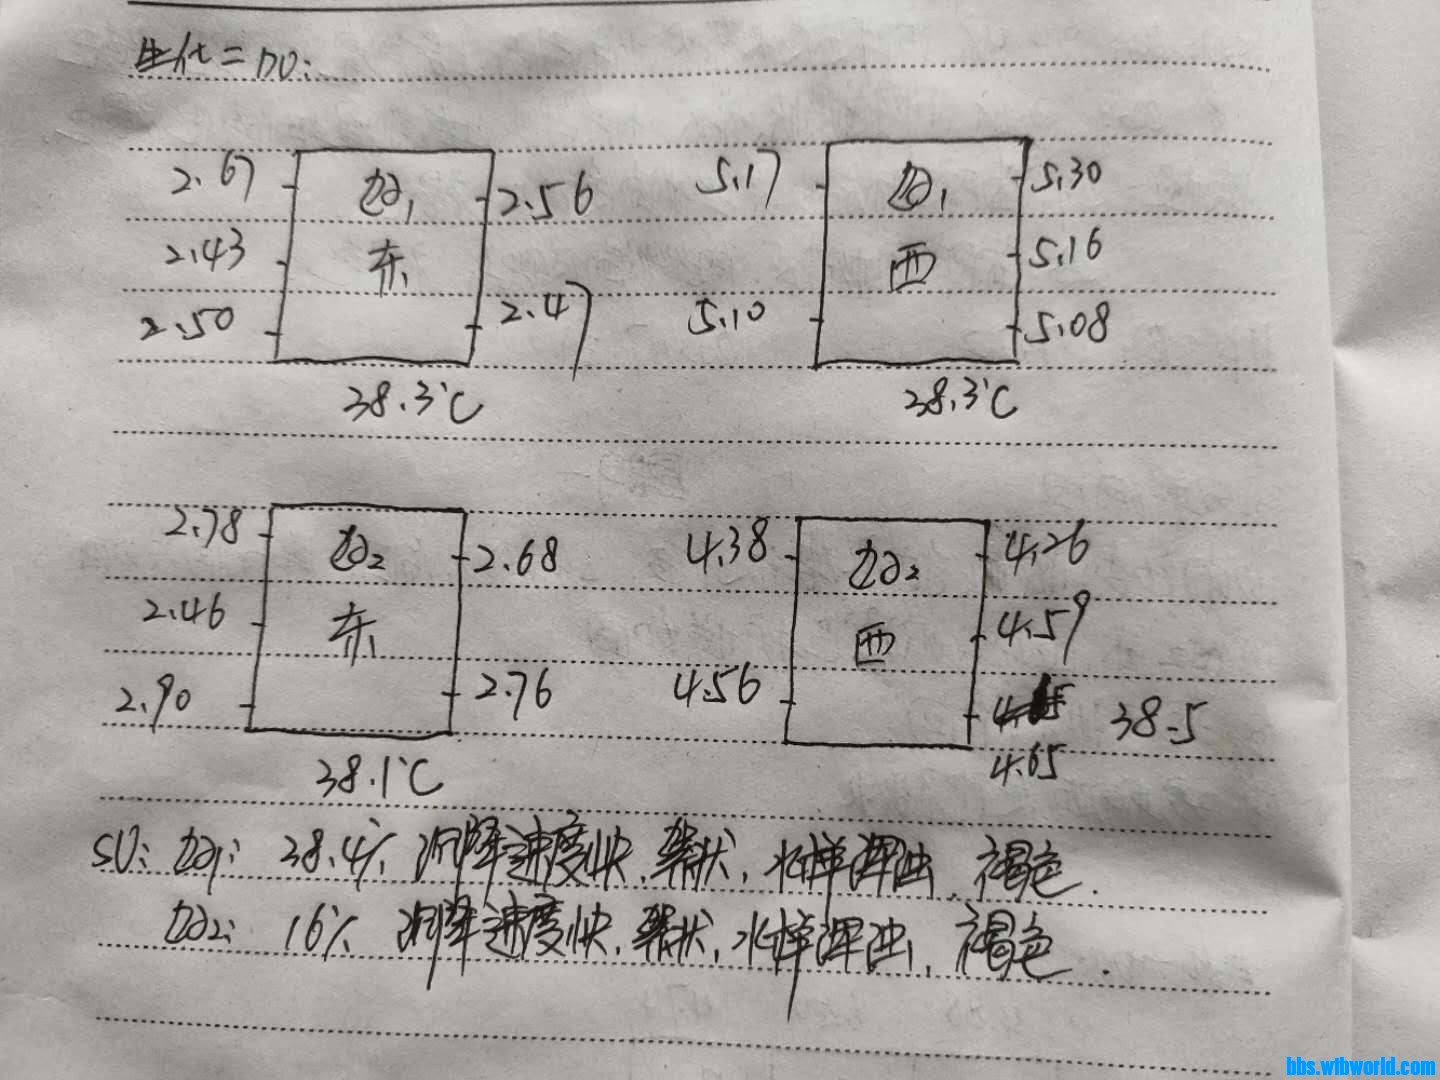 生化二DO:
2.67 2.56 5.17 5.30
东 西
2.43 5.16
2.50 2.47 5.10 5.08
38.3℃ 38.3℃
2.78 2.68 4.38 4.26
2.46 东 西 4.59
2.90 2.76 4.56
38.5
4.65
38.1℃
SV: 38.4% 沉降速度快,絮状,水样浑浊,褐色.
16% 沉降速度快,絮状,水样浑浊,褐色.
bbs.wtbworld.com